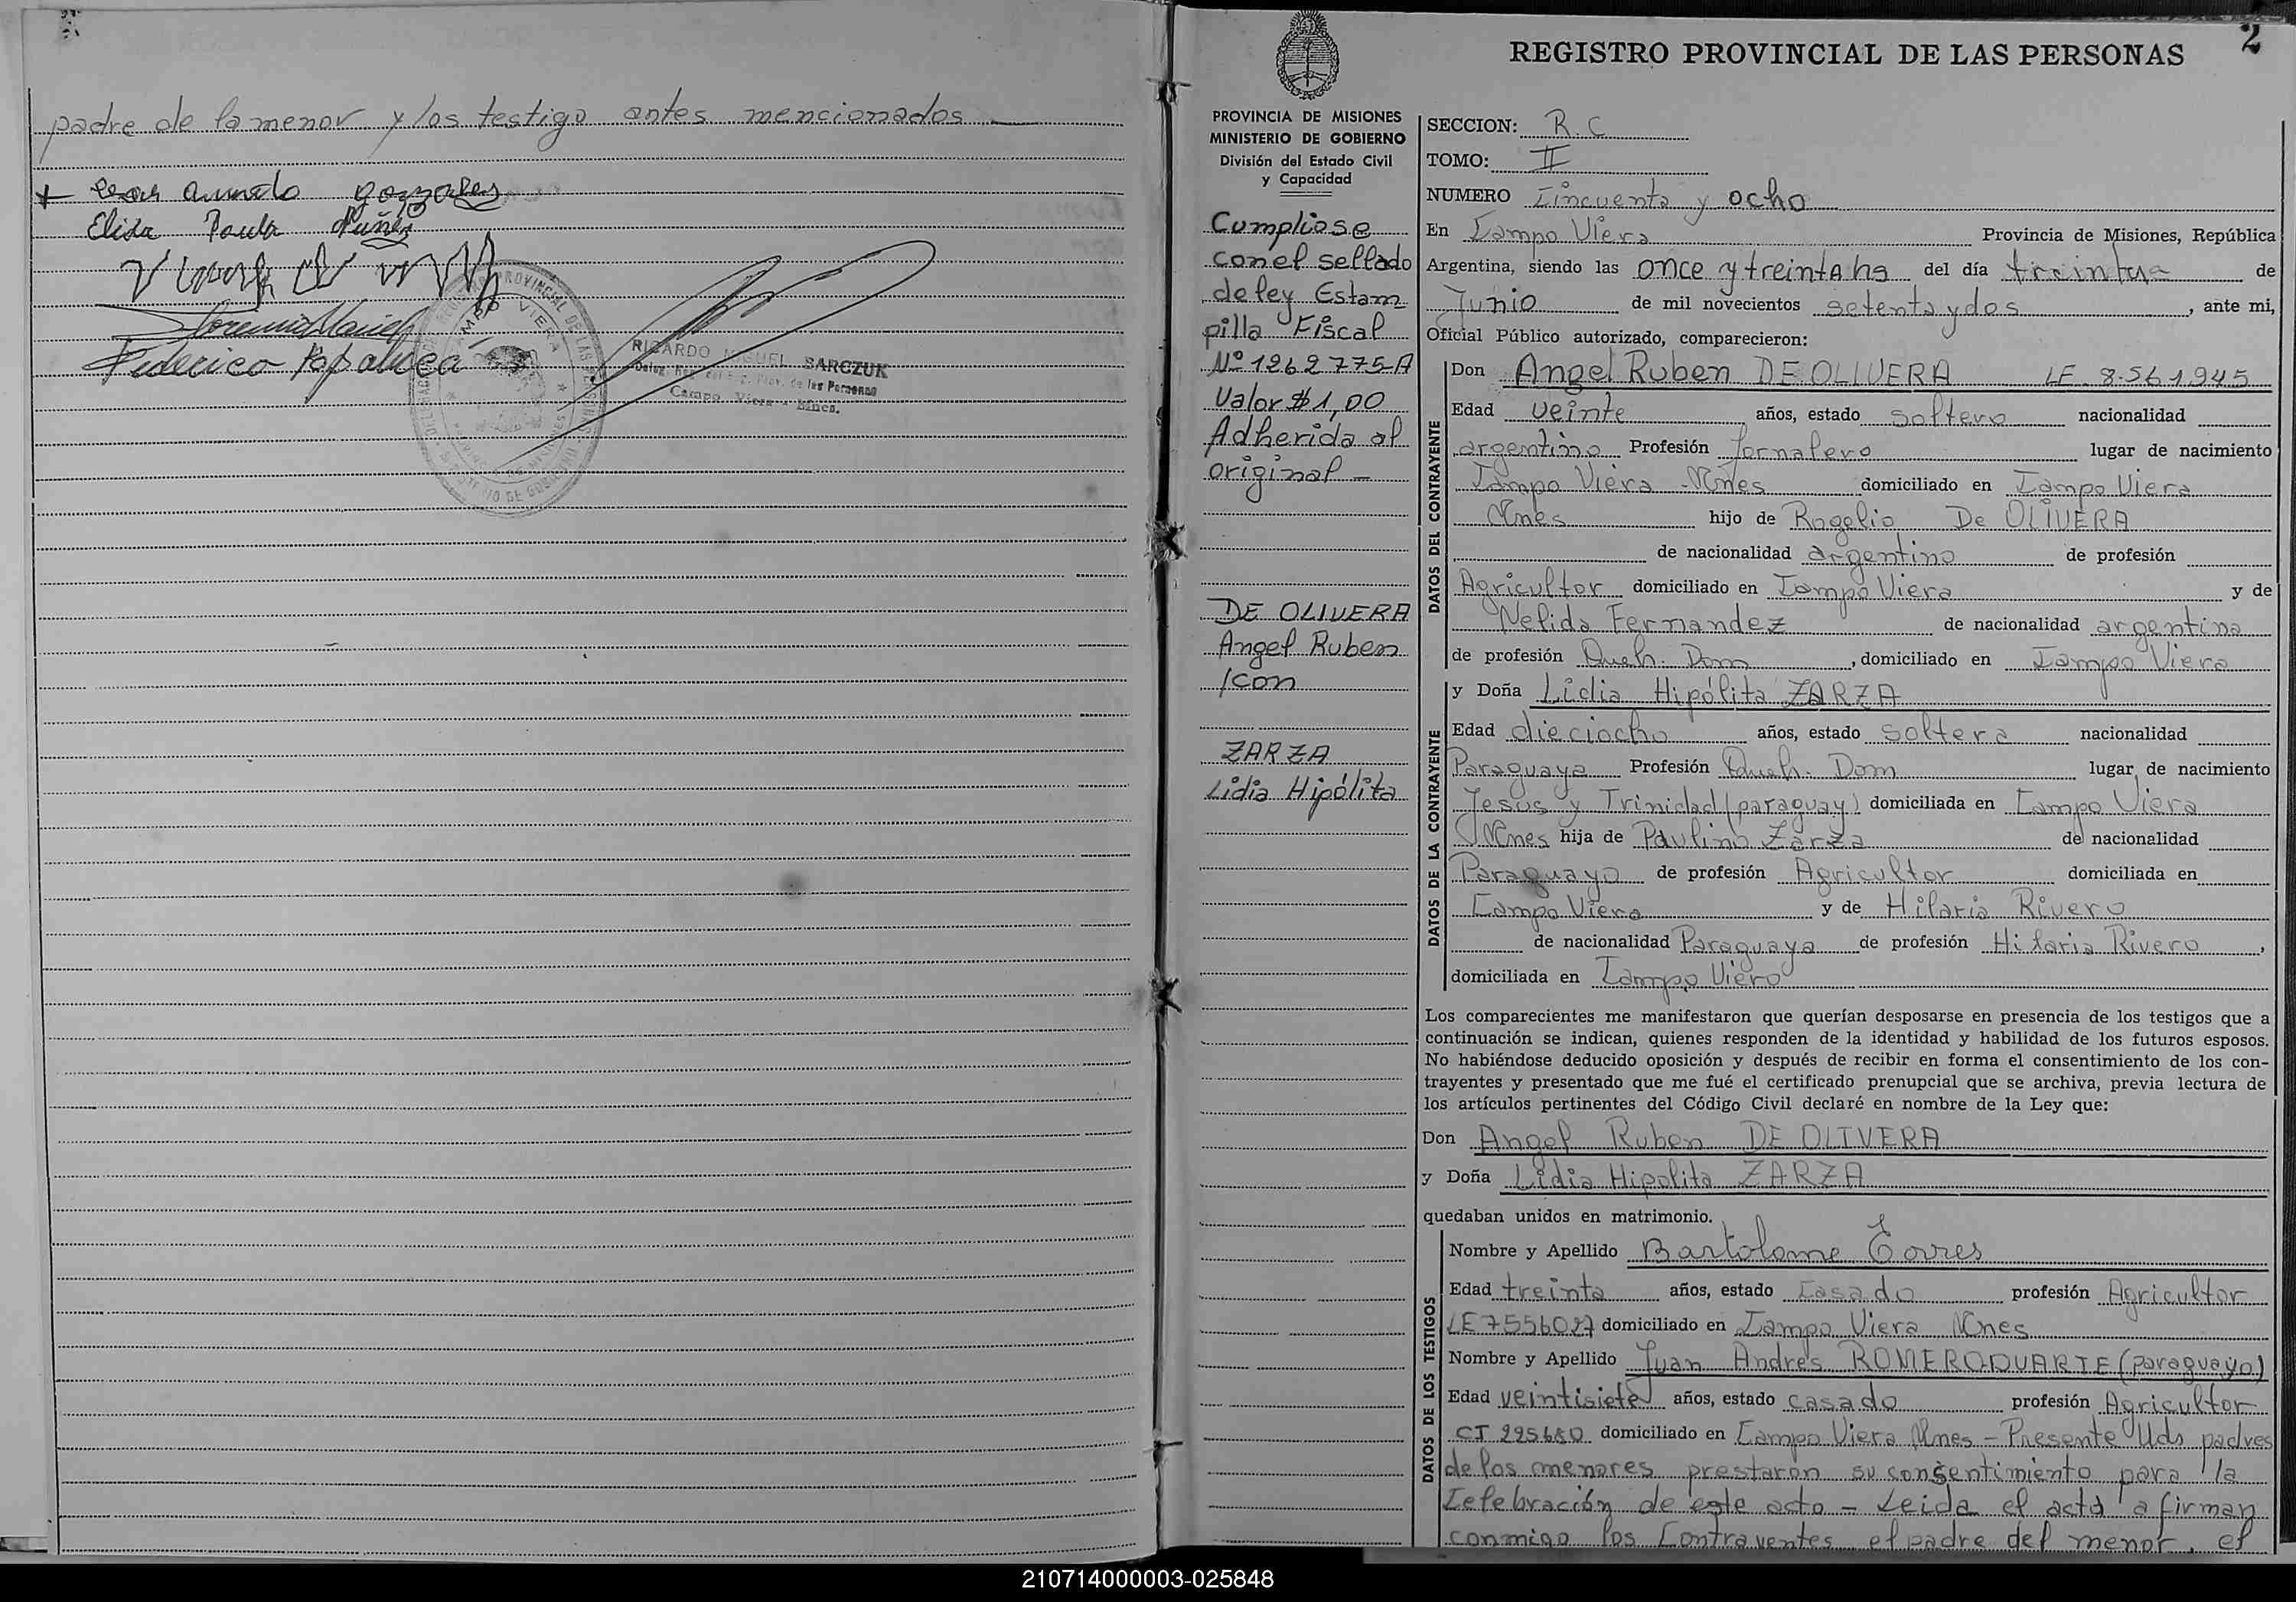 padre de la menor y los testigo antes mencionados
gonzales
Elida Paula Nuñez
Federico
CAMPO VIERA
RICARDO MIGUEL SARCZUK
Deleg. Reg. Prov. de las Personas
Campo Viera - Mnes.
2
REGISTRO PROVINCIAL DE LAS PERSONAS
PROVINCIA DE MISIONES
MINISTERIO DE GOBIERNO
División del Estado Civil
y Capacidad
Cumpliose
con el sellado
de ley Estam
pilla Fiscal
Nº 1262775A
Valor $ 1,00
Adherida al
original -
DE OLIVERA
Angel Ruben
/con
ZARZA
Lidia Hipólita
SECCION: R.C
TOMO: II
NUMERO Cincuenta y ocho
En Campo Viera Provincia de Misiones, República
Argentina, siendo las once y treinta hs del día treinta de
Junio de mil novecientos setenta y dos, ante mi,
Oficial Público autorizado, comparecieron:
DATOS DEL CONTRAYENTE
Don Angel Ruben DE OLIVERA LE. 8.561.945
Edad veinte años, estado soltero nacionalidad
argentino Profesión Jornalero lugar de nacimiento
Campo Viera - Mnes domiciliado en Campo Viera
Mnes hijo de Rogelio De OLIVERA
de nacionalidad argentino de profesión
Agricultor domiciliado en Campo Viera y de
Nelida Fernandez de nacionalidad argentina
de profesión Queh. Dom, domiciliado en Campo Viera
DATOS DE LA CONTRAYENTE
y Doña Lidia Hipólita ZARZA
Edad dieciocho años, estado soltera nacionalidad
Paraguaya Profesión Queh. Dom lugar de nacimiento
Jesús y Trinidad (paraguay) domiciliada en Campo Viera
Mnes hija de Paulino Zarza de nacionalidad
Paraguayo de profesión Agricultor domiciliada en
Campo Viera y de Hilaria Rivero
de nacionalidad Paraguaya de profesión Hilaria Rivero,
domiciliada en Campo Viera
Los comparecientes me manifestaron que querían desposarse en presencia de los testigos que a
continuación se indican, quienes responden de la identidad y habilidad de los futuros esposos.
No habiéndose deducido oposición y después de recibir en forma el consentimiento de los con-
trayentes y presentado que me fué el certificado prenupcial que se archiva, previa lectura de
los artículos pertinentes del Código Civil declaré en nombre de la Ley que:
Don Angel Ruben DE OLIVERA
y Doña Lidia Hipolita ZARZA
quedaban unidos en matrimonio.
DATOS DE LOS TESTIGOS
Nombre y Apellido Bartolome Torres
Edad treinta años, estado Casado profesión Agricultor
LE 7556027 domiciliado en Campo Viera Mnes
Nombre y Apellido Juan Andrés ROMERO DUARTE (paraguayo)
Edad veintisiete años, estado casado profesión Agricultor
CI 225680 domiciliado en Campo Viera Mnes - Presente Uds padres
de los menores prestaron su consentimiento para la
Celebración de este acto = Leida el acta a firman
conmigo los Contrayentes el padre del menor, el
210714000003-025848